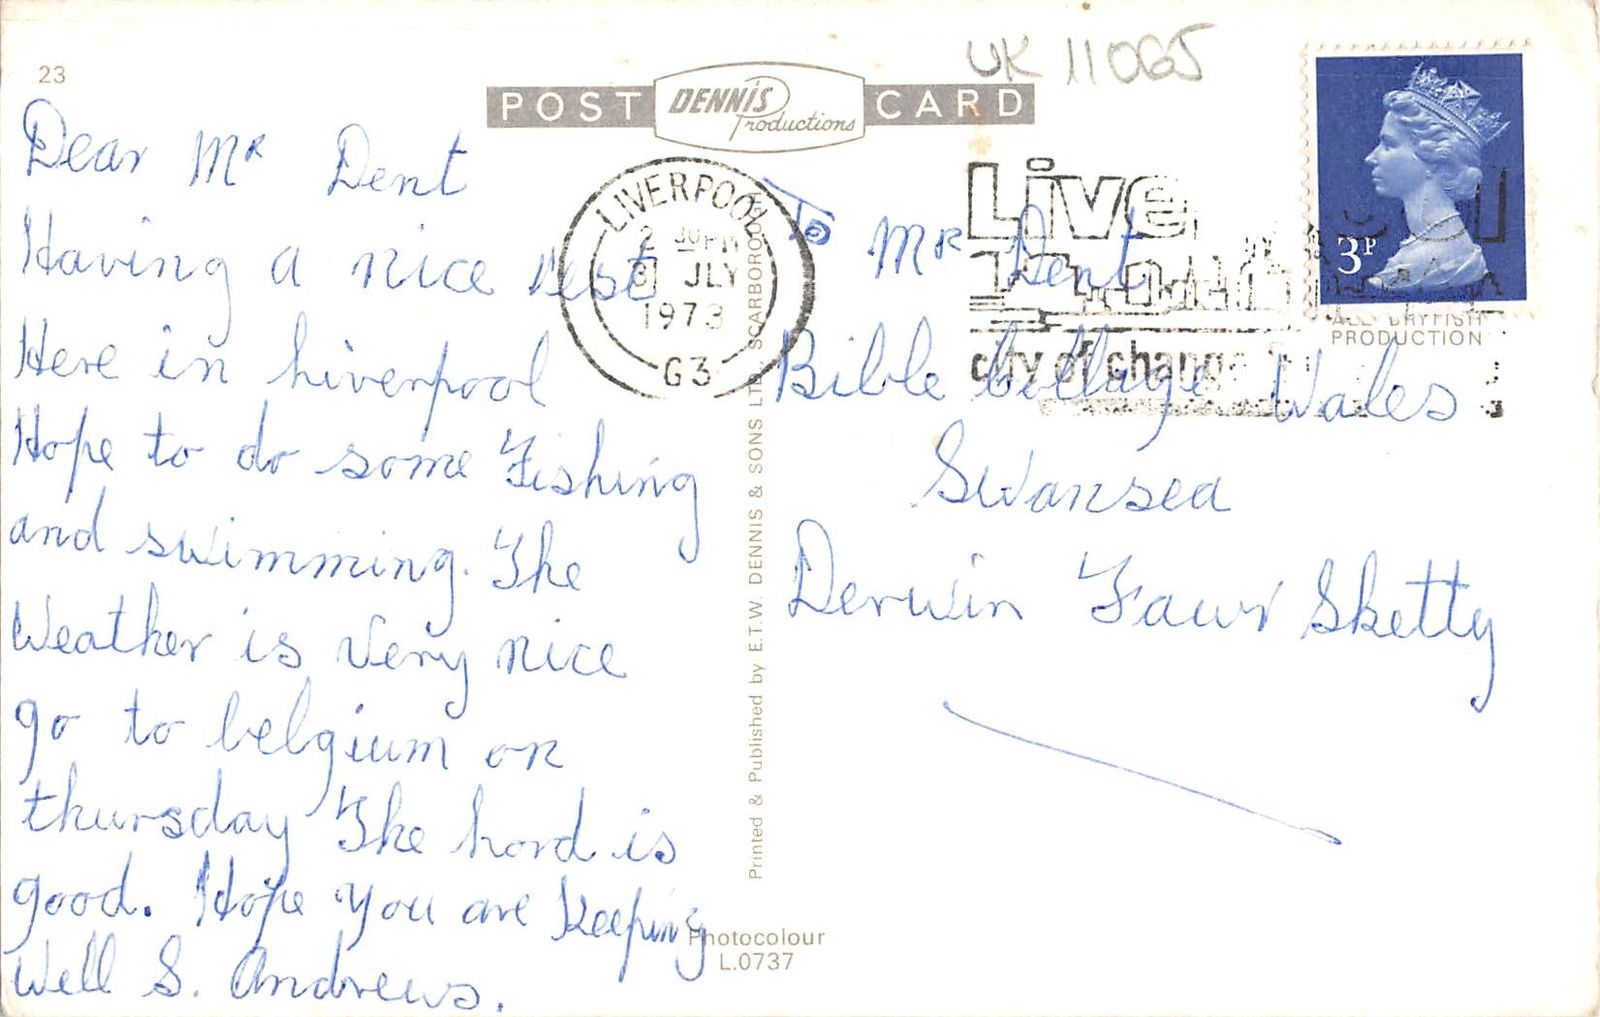 23
UK 11065
POST DENNIS Productions CARD
Dear Mr Dent
Having a nice rest
Here in Liverpool
Hope to do some Fishing
and swimming. The
Weather is very nice
go to belgium on
thursday The hord is
good. Hope you are Keeping
Well S. Andrews.
LIVERPOOL
2 30 PM
3 JLY
1973
G3
Live
city of change
3P
ALL BRITISH
PRODUCTION
To Mr Dent
Bible College Wales
Swansea
Derwin Fawr Sketty
Printed & Published by E.T.W. DENNIS & SONS LTD., SCARBOROUGH
Photocolour
L.0737